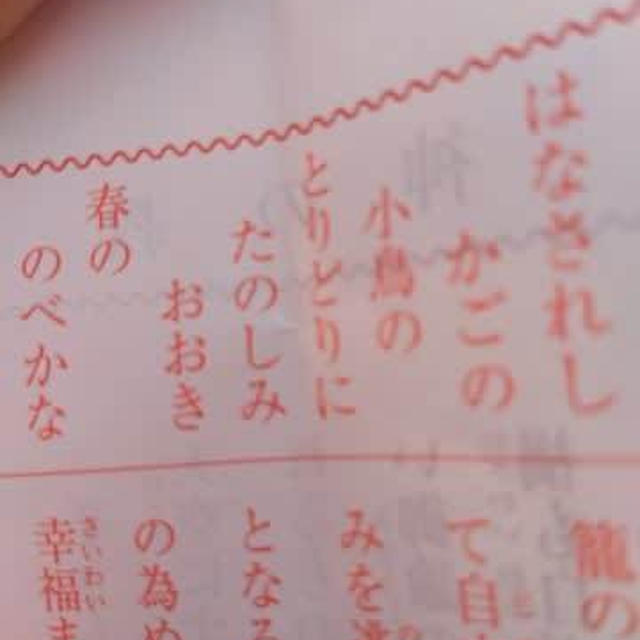 はなされし
かごの
小鳥の
とりどりに
たのしみ
おおき
春の
のべかな
籠の
て自
みを
となる
の為め
幸福ま
さいわい